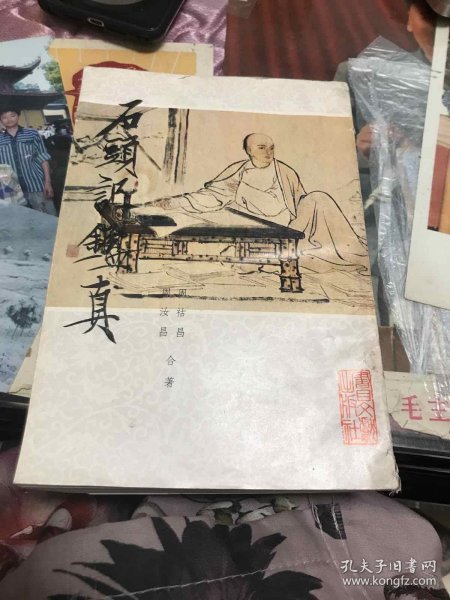 石頭記鑑真
周祜昌
周汝昌
合著
書目文獻
出版社
毛主
孔夫子旧书网
www.kongfz.com